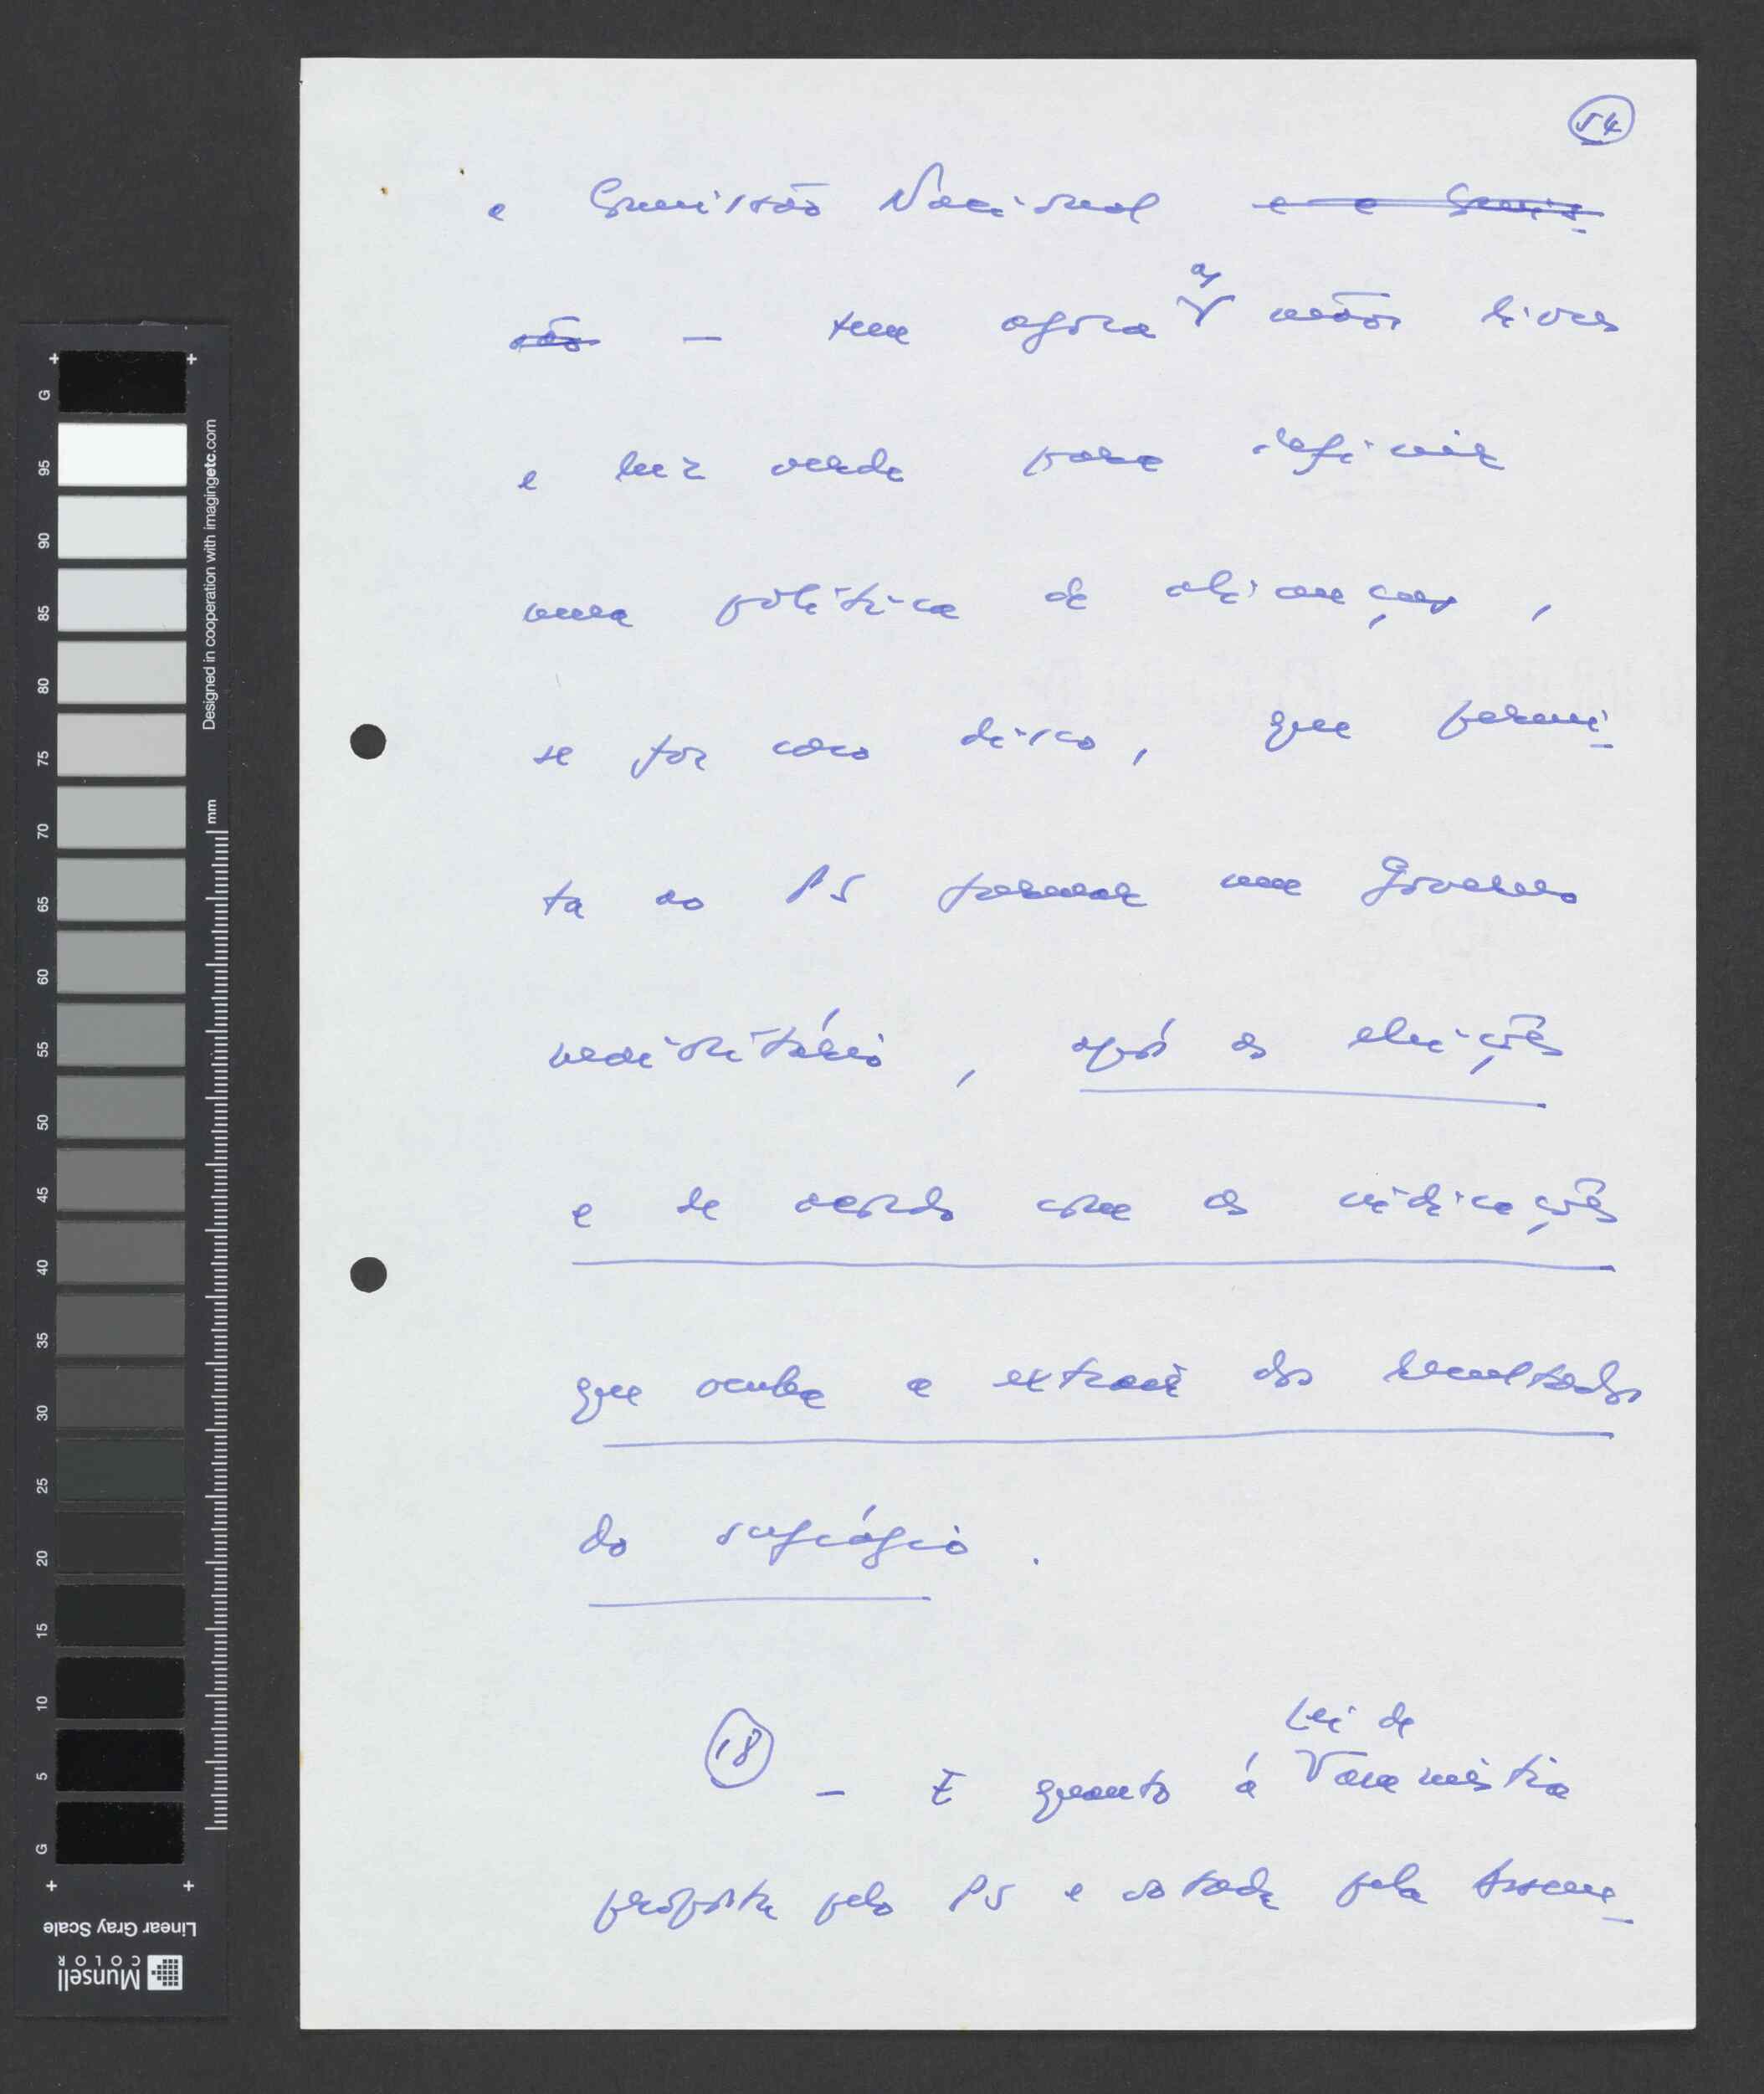 54
e Comissão Nacional e a Comis-
são — tem agora as mãos livres
e luz verde para definir
uma política de alianças,
se for caso disso, que permi-
ta ao PS formar um Governo
maioritário, após as eleições
e de acordo com as indicações
que acabe a extrair dos resultados
do sufrágio.
Lei de
18 — E quanto à Amnistia
proposta pelo PS e votada pela Assem-
G 95 90 85 80 75 70 65 60 55 50 45 40 35 30 25 20 15 10 5 G
mm
Designed in cooperation with imagingetc.com
Linear Gray Scale
Munsell
COLOR